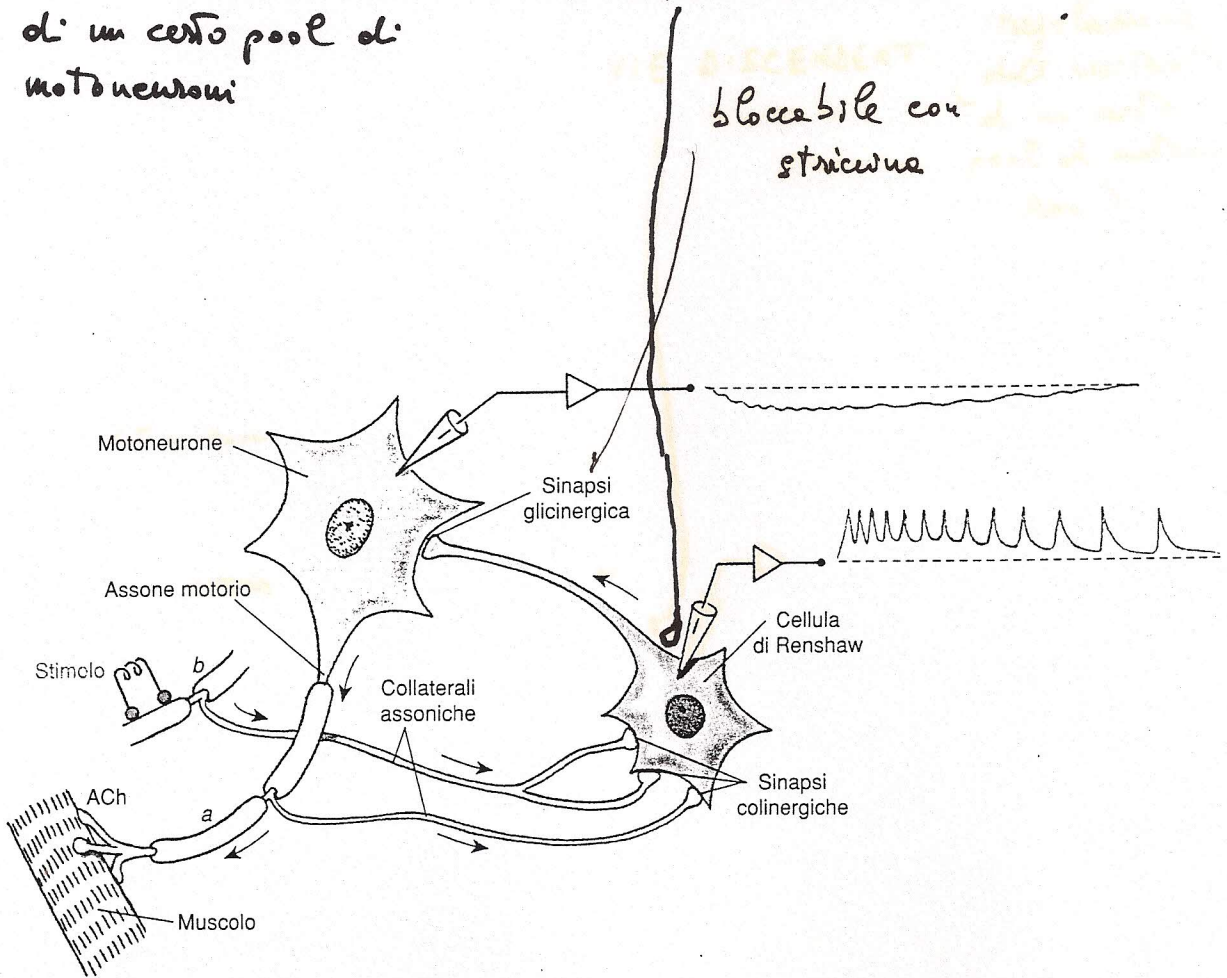 di un certo pool di
motoneuroni
bloccabile con
stricnina
Motoneurone
Sinapsi
glicinergica
Assone motorio
Cellula
di Renshaw
Stimolo
b
Collaterali
assoniche
Sinapsi
colinergiche
ACh
a
Muscolo